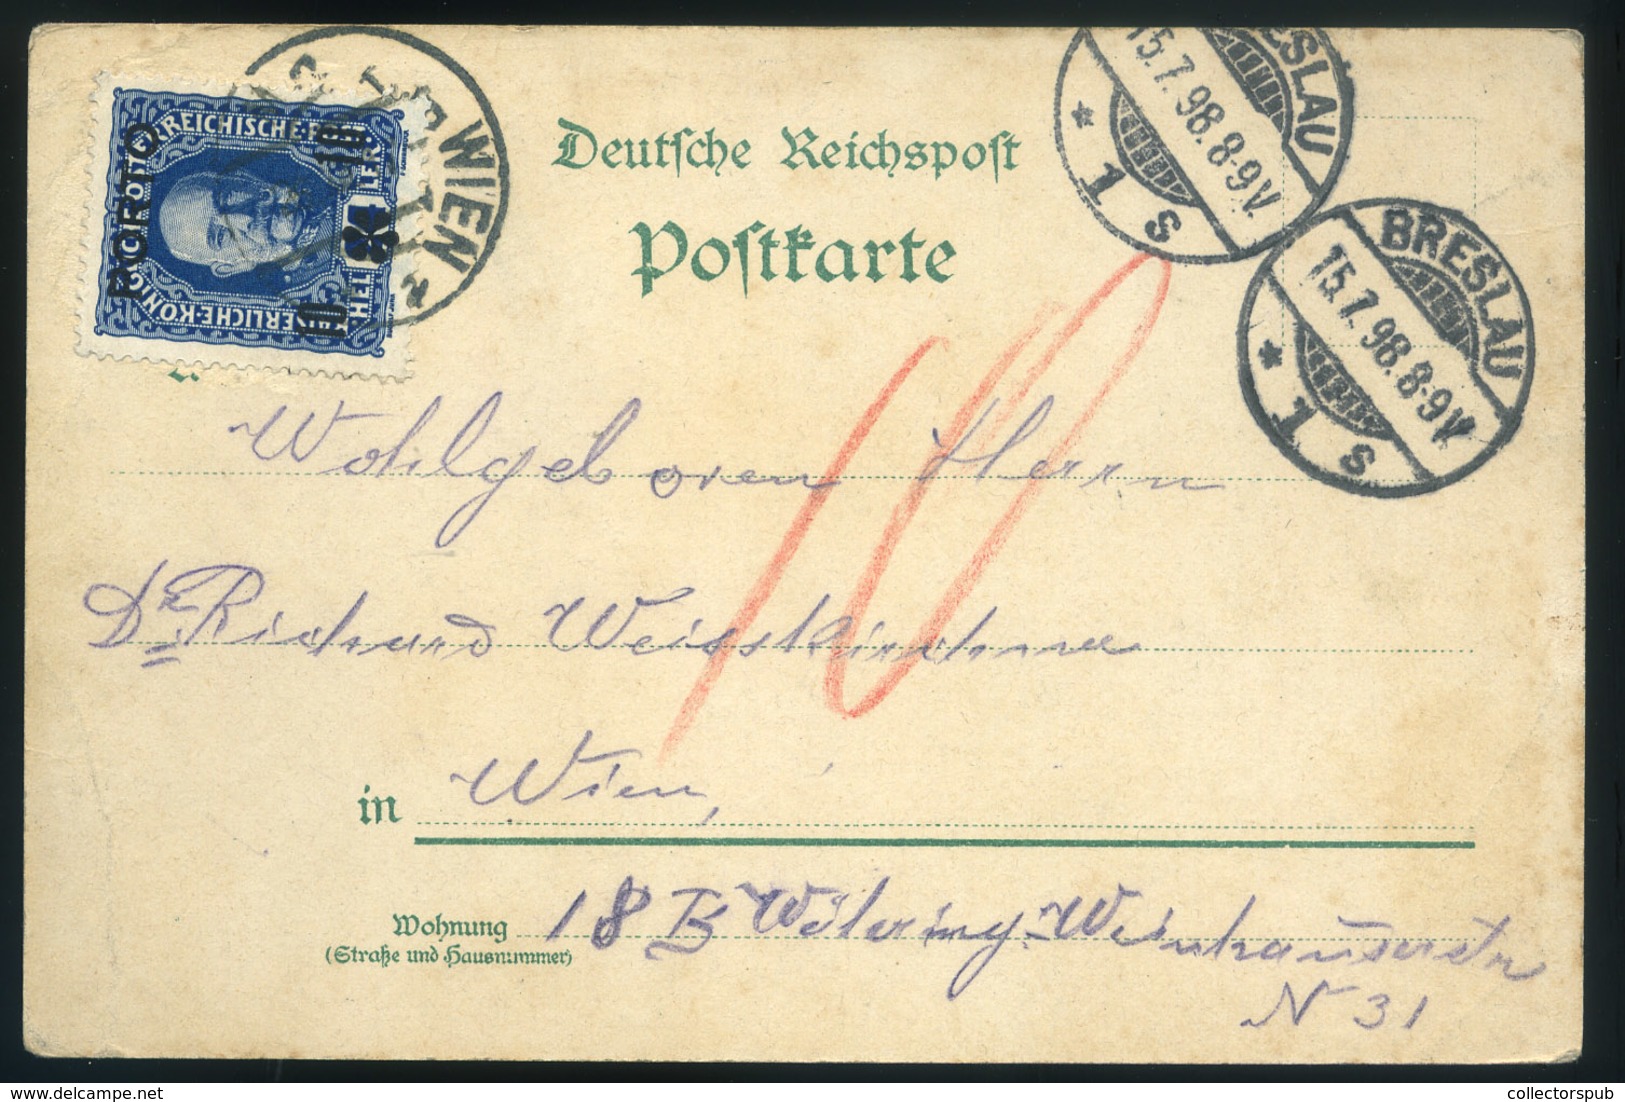 PORTO
KAISERLICHE·KÖNIGLICHE ÖSTERREICHISCHE·POST
10
10
HEL LER
WIEN
BRESLAU
15.7.98.8-9V.
* 1 s
BRESLAU
15.7.98.8-9V.
* 1 s
Deutsche Reichspost
Postkarte
10
Wohlgeboren Herrn
Dr. Richard Weisskirchner
in Wien,
Wohnung
(Straße und Hausnummer)
18 B Währing Weinhauserstr
N 31
collectorspub